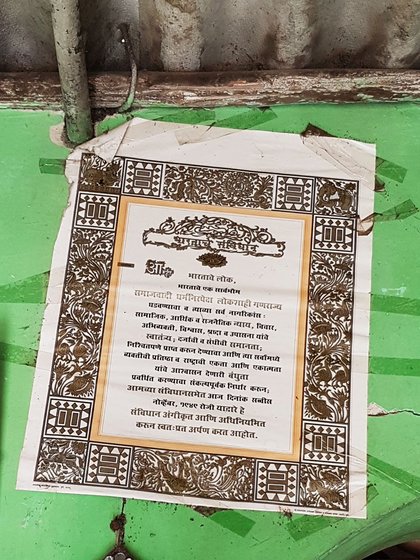 भारताचे संविधान
आम्ही
भारताचे लोक,
भारताचे एक सार्वभौम
समाजवादी धर्मनिरपेक्ष लोकशाही गणराज्य
घडवण्याचा व त्याच्या सर्व नागरिकांस :
सामाजिक, आर्थिक व राजनैतिक न्याय, विचार,
अभिव्यक्ती, विश्वास, श्रद्धा व उपासना यांचे
स्वातंत्र्य; दर्जाची व संधीची समानता;
निश्चितपणे प्राप्त करून देण्याचा आणि त्या सर्वांमध्ये
व्यक्तीची प्रतिष्ठा व राष्ट्राची एकता आणि एकात्मता
यांचे आश्वासन देणारी बंधुता
प्रवर्धित करण्याचा संकल्पपूर्वक निर्धार करून;
आमच्या संविधानसभेत आज दिनांक सव्वीस
नोव्हेंबर, १९४९ रोजी याद्वारे हे
संविधान अंगीकृत आणि अधिनियमित
करून स्वतःप्रत अर्पण करत आहोत.